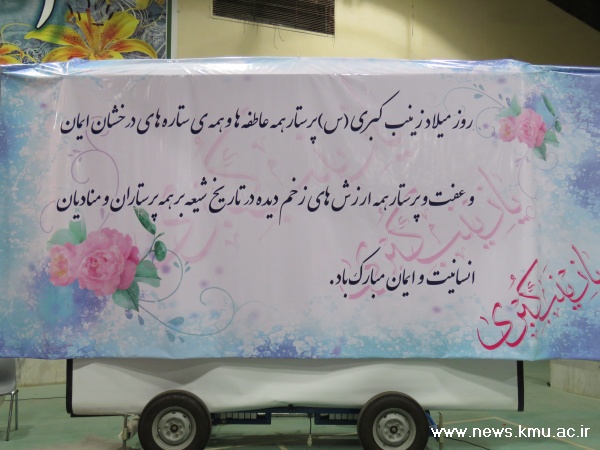 روز میلاد زینب کبری (س) پرستار همه عاطفه ها و همه ی ستاره های درخشان ایمان
و عفت و پرستار همه ارزش های زخم دیده در تاریخ شیعه بر همه پرستاران و منادیان
انسانیت و ایمان مبارک باد.
یا زینب کبری
www.news.kmu.ac.ir